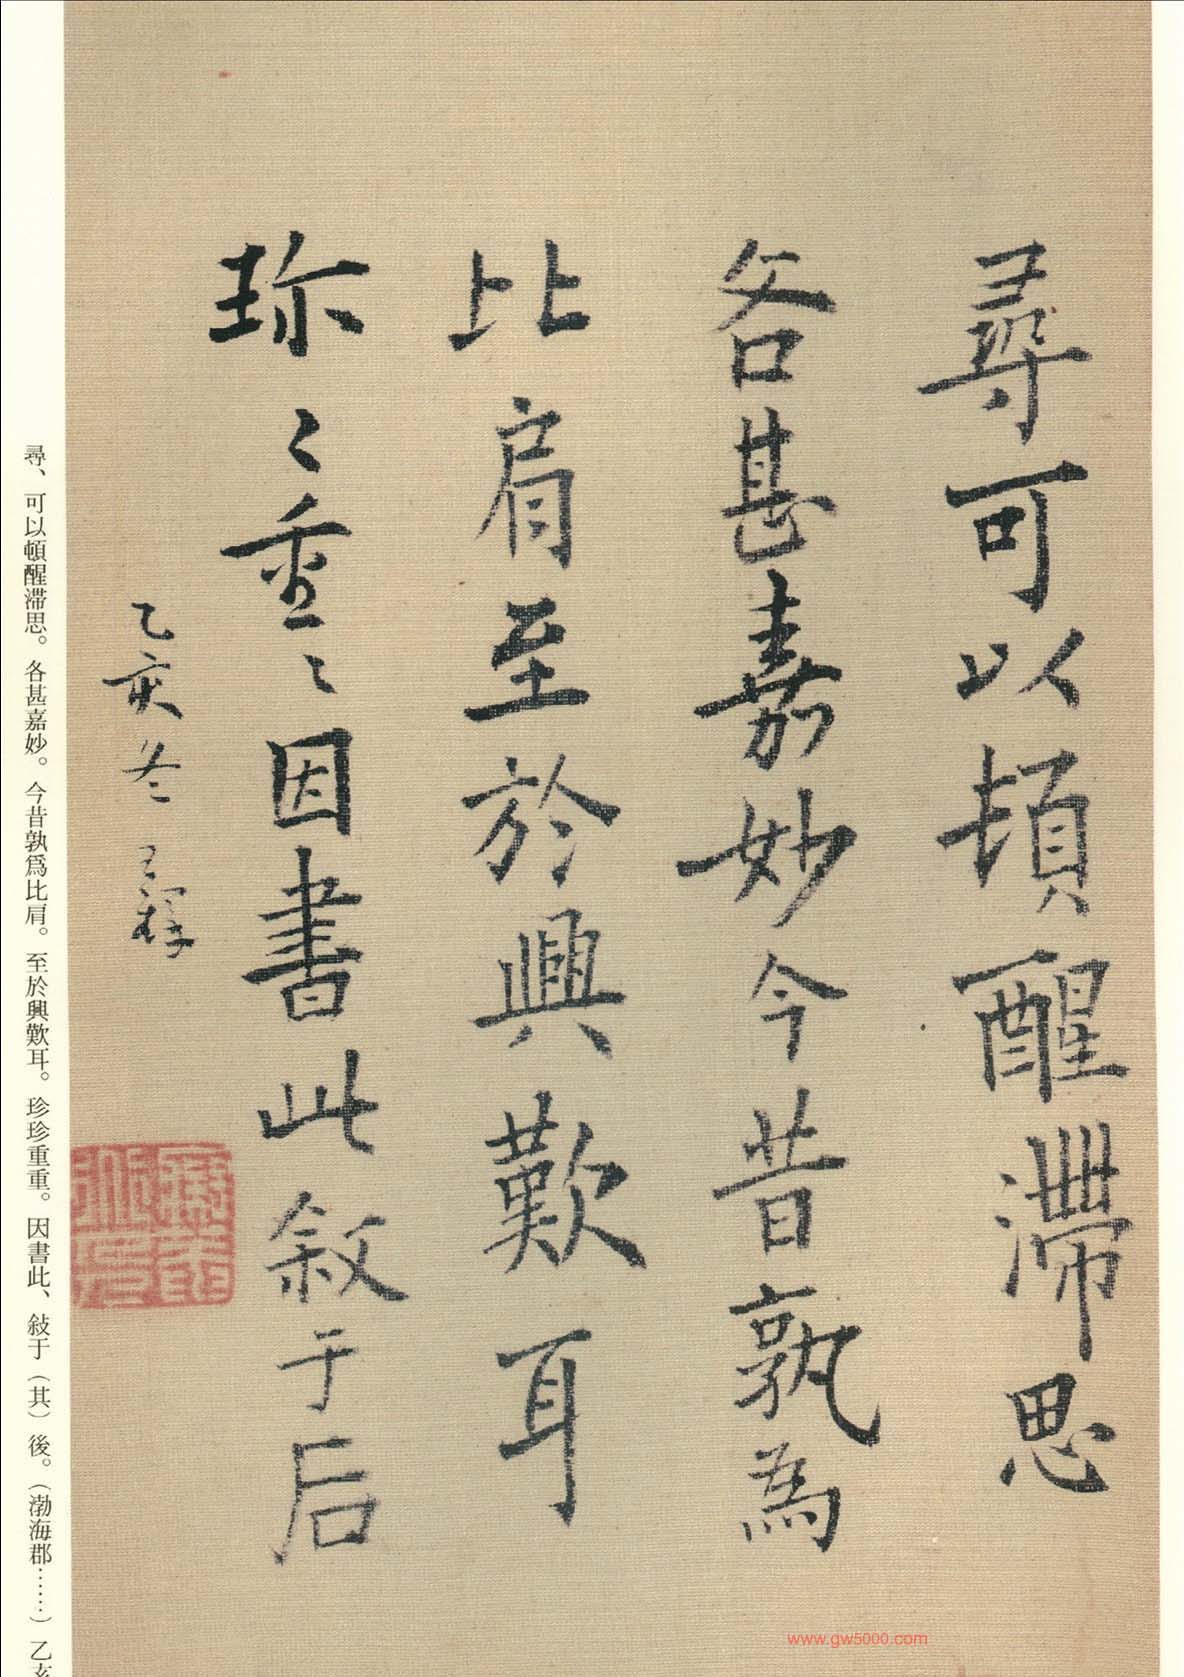 尋可以頓醒滞思
各甚嘉妙今昔孰為
比肩至於興歎耳
珎〻重〻因書此叙于后
乙亥冬
尋、可以頓醒滞思。各甚嘉妙。今昔孰爲比肩。至於興歎耳。珍珍重重。因書此、敍于（其）後。（渤海郡……）乙亥
www.gw5000.com